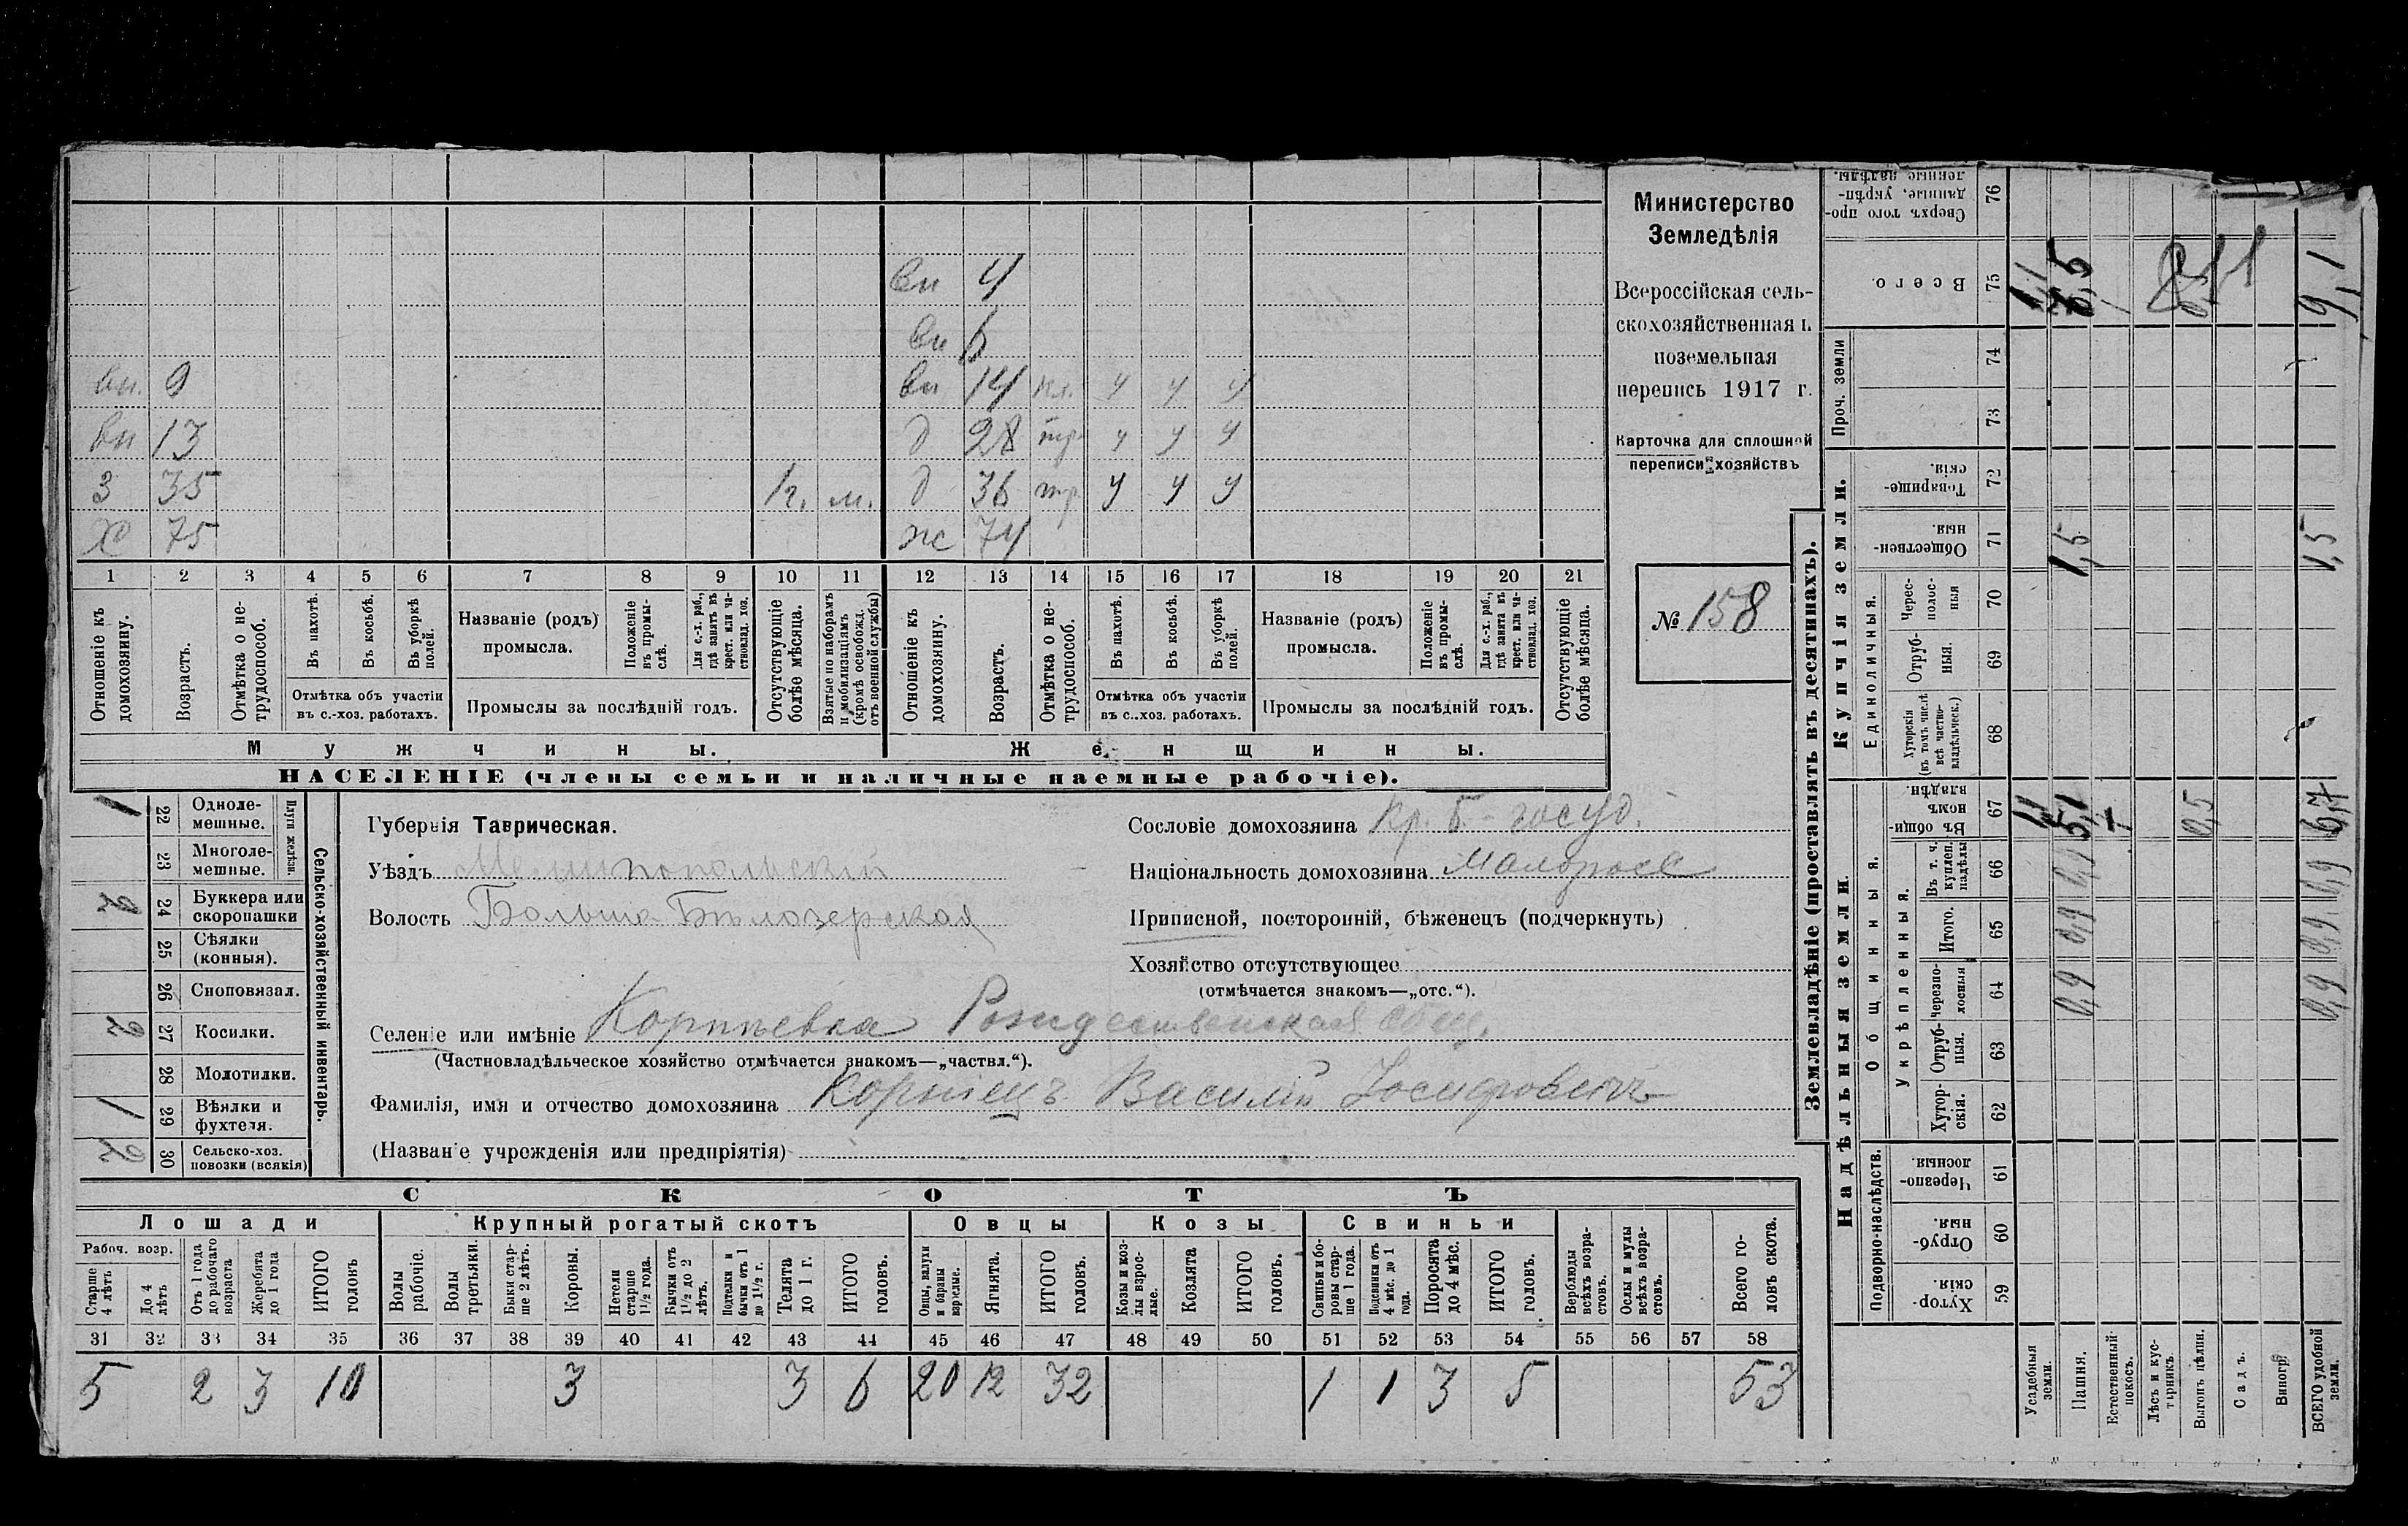 вн 4
вн 6
вн. 9 вн 14 у у у
вн 13 д 28 у у у
З 35 1 г. м. д 36 у у у
Х 75 ж 74
1 2 3 4 5 6 7 8 9 10 11 12 13 14 15 16 17 18 19 20 21
Отношеніе къ домохозяину.
Возрастъ.
Отмѣтка о не-трудоспособ.
Въ пахотѣ.
Въ косьбѣ.
Въ уборкѣ полей.
Отмѣтка объ участіи
въ с.-хоз. работахъ.
Названіе (родъ)
промысла.
Положеніе въ промы-слѣ.
Для с.-х. раб., гдѣ занятъ въ крест. или ча-стновлад. хоз.
Промыслы за послѣдній годъ.
Отсутствующіе болѣе мѣсяца.
Взятые по наборамъ и мобилизаціямъ (кромѣ освобожд. отъ военной службы)
Отношеніе къ домохозяину.
Возрастъ.
Отмѣтка о не-трудоспособ.
Въ пахотѣ.
Въ косьбѣ.
Въ уборкѣ полей.
Отмѣтка объ участіи
въ с.-хоз. работахъ.
Названіе (родъ)
промысла.
Положеніе въ промы-слѣ.
Для с.-х. раб., гдѣ занята въ крест. или ча-стновлад. хоз.
Промыслы за послѣдній годъ.
Отсутствующіе болѣе мѣсяца.
Мужчины. Женщины.
НАСЕЛЕНІЕ (члены семьи и наличные наемные рабочіе).
Министерство
Земледѣлія
Всероссійская сель-
скохозяйственная и
поземельная
перепись 1917 г.
Карточка для сплошной
переписи хозяйствъ
№ 158
Сельско-хозяйственный инвентарь.
Плуги желѣзн.
1 22 Одноле-мешные.
23 Многоле-мешные.
2 24 Буккера или скоропашки
25 Сѣялки (конныя).
26 Сноповязал.
2 27 Косилки.
28 Молотилки.
1 29 Вѣялки и фухтеля.
2 30 Сельско-хоз. повозки (всякія)
Губернія Таврическая.
Уѣздъ Мелитопольскій
Волость Больше-Бѣлозерская
Сословіе домохозяина кр. б.-госуд.
Національность домохозяина Малоросс
Приписной, посторонній, бѣженецъ (подчеркнуть)
Хозяйство отсутствующее
(отмѣчается знакомъ—„отс.“).
Селеніе или имѣніе Корнѣевка Рождественская общ.
(Частновладѣльческое хозяйство отмѣчается знакомъ—„частвл.“).
Фамилія, имя и отчество домохозяина Корніецъ Василій Іосифовичъ
(Названіе учрежденія или предпріятія)
СКОТЪ
Лошади Крупный рогатый скотъ Овцы Козы Свиньи
Рабоч. возр.
Старше 4 лѣтъ
До 4 лѣтъ
Отъ 1 года до рабочаго возраста
Жеребята до 1 года
ИТОГО головъ
Волы рабочіе.
Волы третьяки.
Быки стар-ше 2 лѣтъ.
Коровы.
Нетели старше 1½ года.
Бычки отъ 1½ до 2 лѣтъ.
Подтелки и бычки отъ 1 до 1½ г.
Телята до 1 г.
ИТОГО головъ.
Овцы, валухи и бараны взрослые.
Ягнята.
ИТОГО головъ.
Козы и коз-лы взрос-лые.
Козлята
ИТОГО головъ.
Свиньи и бо-ровы стар-ше 1 года.
Подсвинки отъ 4 мѣс. до 1 года.
Поросята до 4 мѣс.
ИТОГО головъ.
Верблюды всѣхъ возра-стовъ.
Ослы и мулы всѣхъ возра-стовъ.
Всего го-ловъ скота.
31 32 33 34 35 36 37 38 39 40 41 42 43 44 45 46 47 48 49 50 51 52 53 54 55 56 57 58
5 2 3 10 3 3 6 20 12 32 1 1 3 5 53
Землевладѣніе (проставлять въ десятинахъ).
Надѣльныя земли
Подворно-наслѣдств.
Хутор-скія. 59
Отруб-ныя. 60
Черезпо-лосныя. 61
Общинныя.
Укрѣпленныя.
Хутор-скія. 62
Отруб-ныя. 63
черезпо-лосныя 64
Итого. 65
Въ т. ч. куплен. надѣлы 66
Въ общин-номъ владѣн. 67
Купчія земли.
Единоличныя.
Хуторскія (въ томъ числѣ всѣ частно-владѣльческ.) 68
Отруб-ныя. 69
Черес-полос-ныя 70
Обществен-ныя. 71
Товарище-скія. 72
Проч. земли
73 74
Всего. 75
Сверхъ того про-данные, укрѣп-ленные надѣлы. 76
Усадебныя земли. 1,1 1,1
Пашня. 0,9 0,9 0,9 5,1 1,5 7,5
Естественный покосъ.
Лѣсъ и кус-тарникъ.
Выгонъ цѣлин. 0,5
Садъ.
Виногр.
ВСЕГО удобной земли. 0,9 0,9 0,9 6,7 1,5 9,1